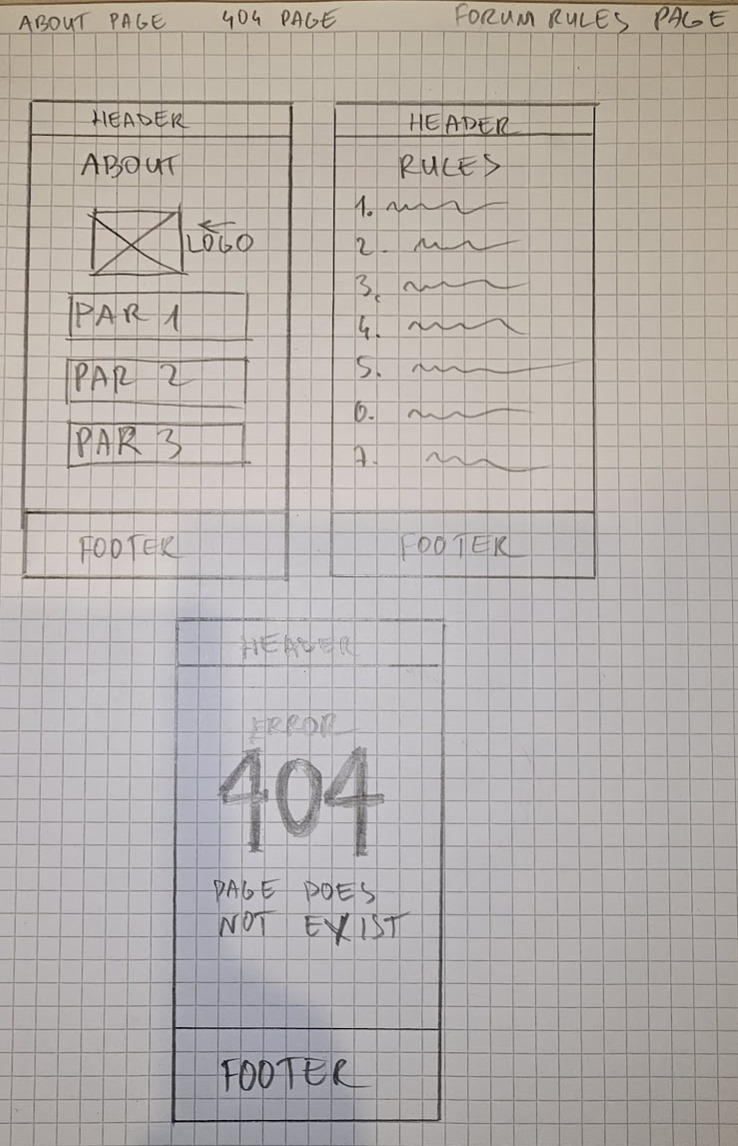 ABOUT PAGE 404 PAGE FORUM RULES PAGE
HEADER
ABOUT
LOGO
PAR 1
PAR 2
PAR 3
FOOTER
HEADER
RULES
1.
2.
3.
4.
5.
6.
7.
FOOTER
HEADER
ERROR
404
PAGE DOES
NOT EXIST
FOOTER